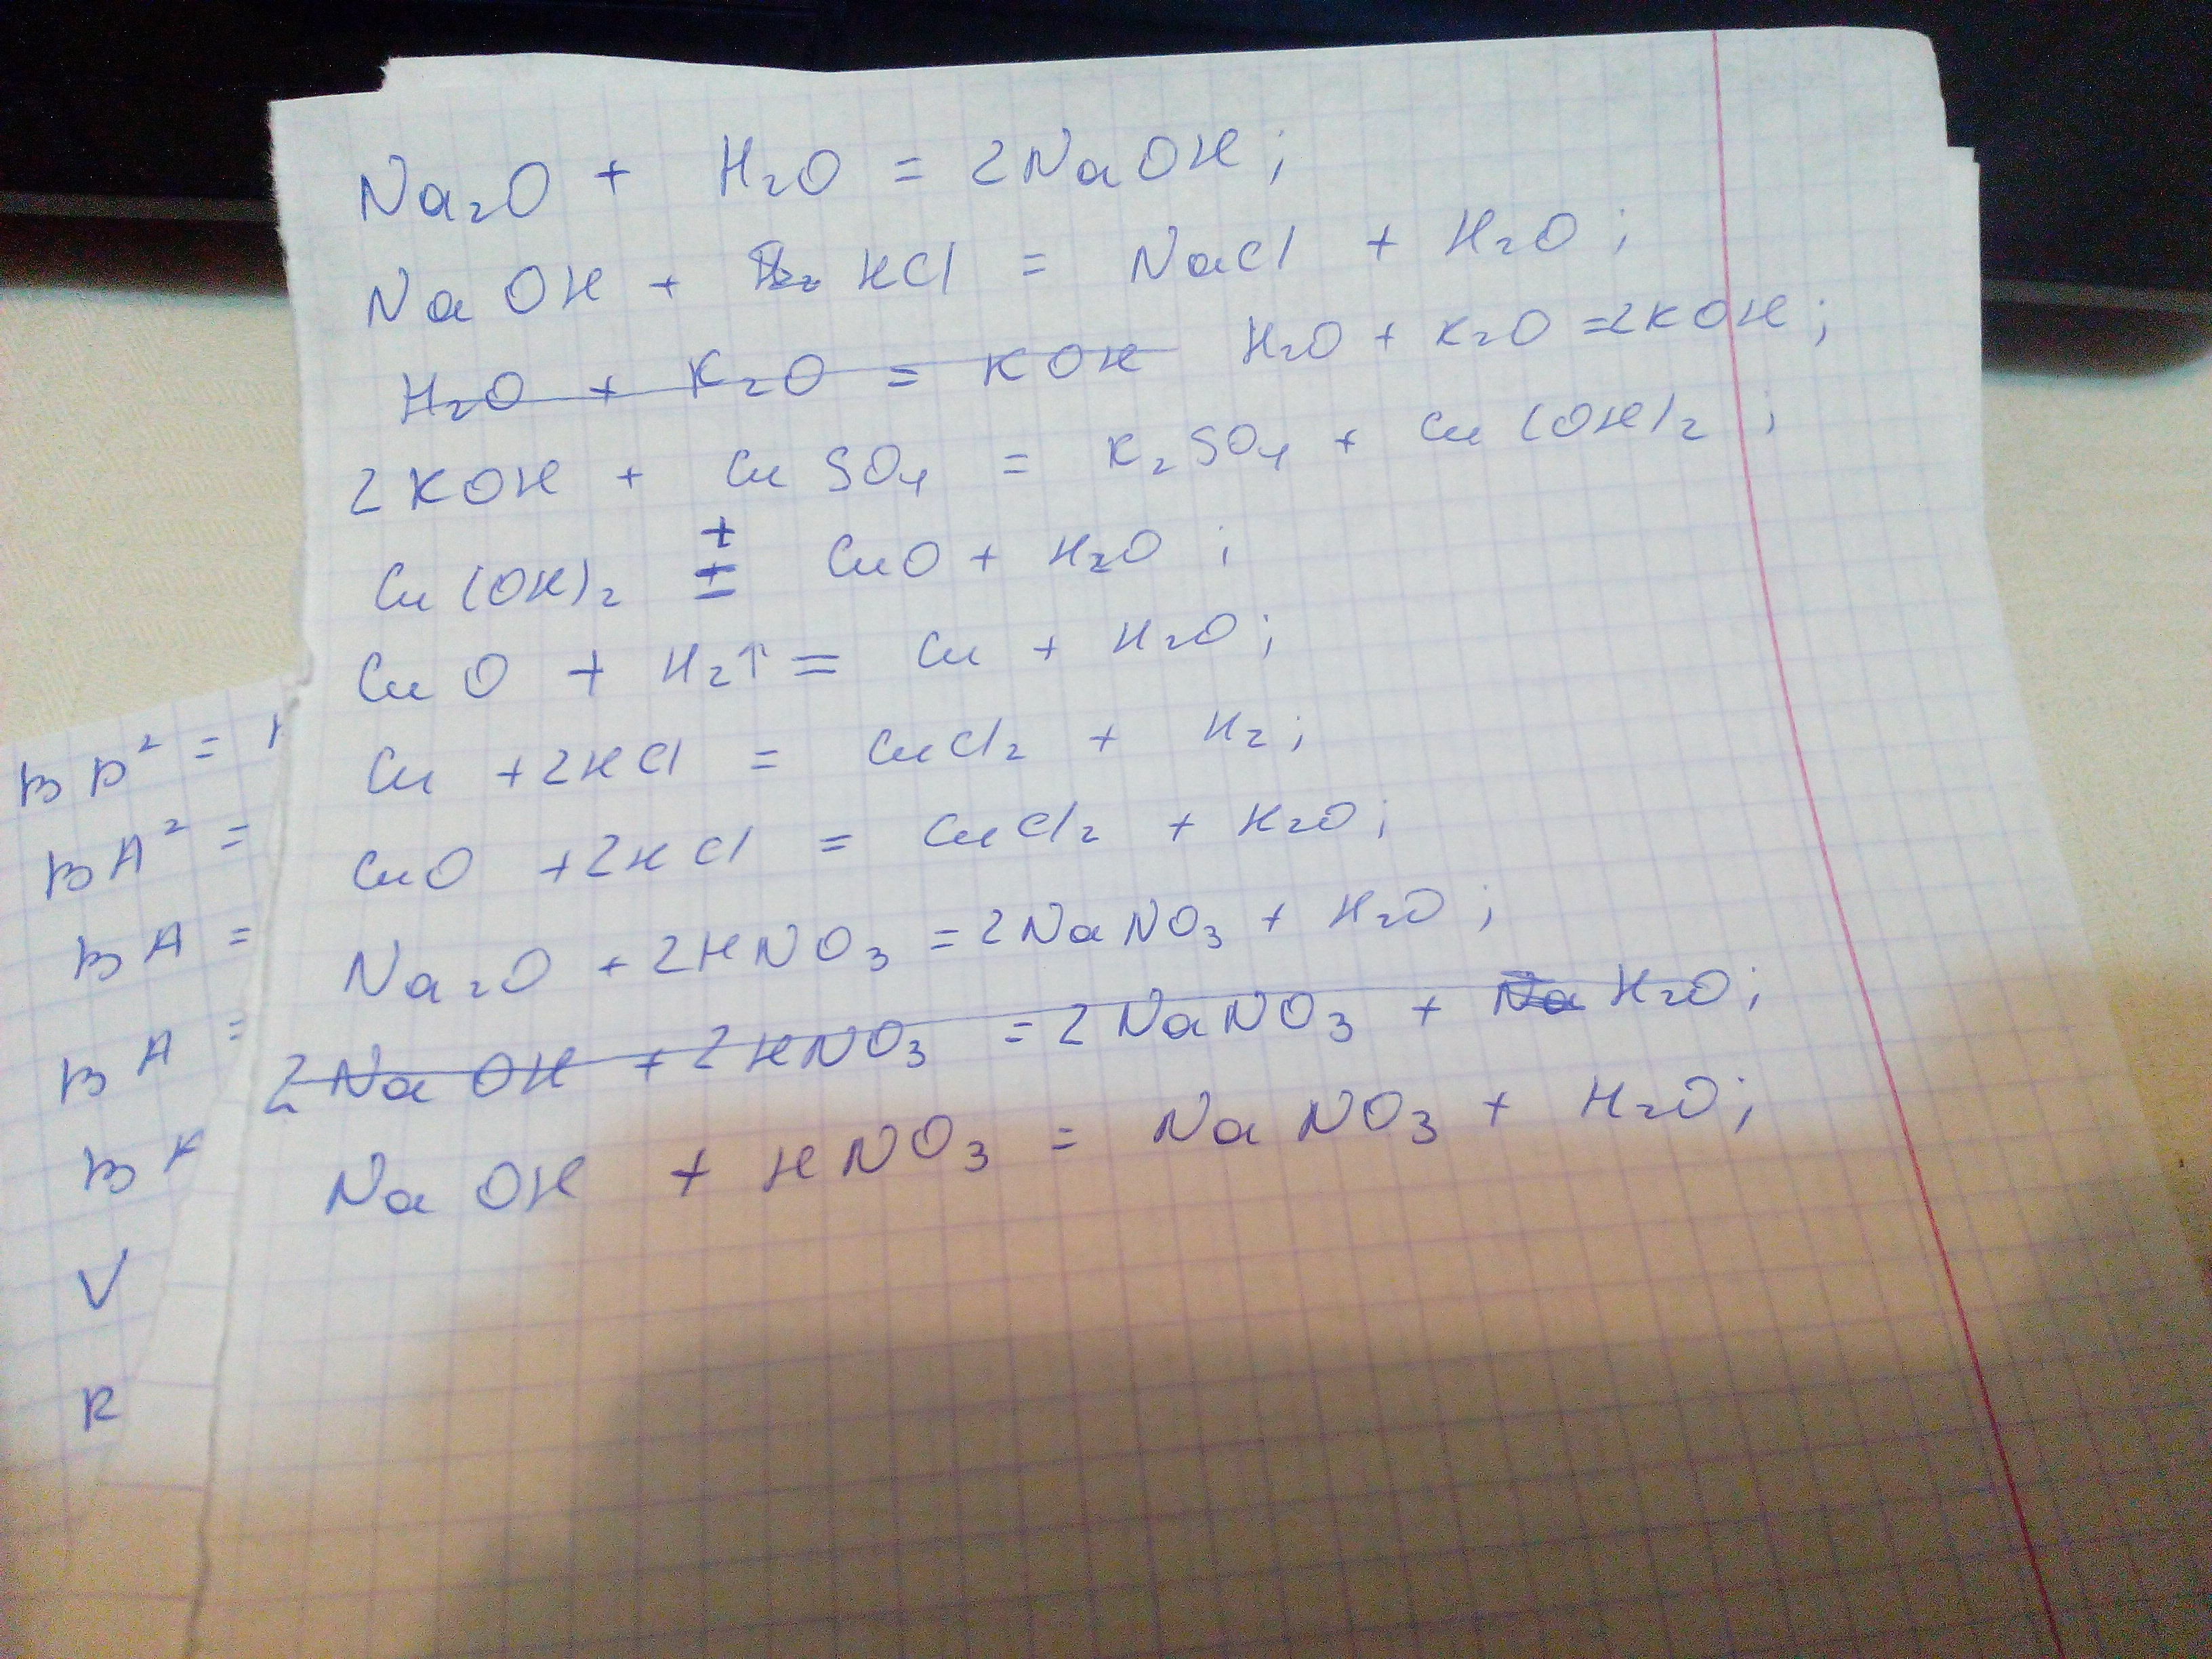 Na₂O + H₂O = 2NaOH;
NaOH + HCl = NaCl + H₂O;
H₂O + K₂O = KOH H₂O + K₂O = 2KOH;
2KOH + CuSO₄ = K₂SO₄ + Cu(OH)₂;
Cu(OH)₂ = CuO + H₂O;
CuO + H₂↑ = Cu + H₂O;
Cu + 2HCl = CuCl₂ + H₂;
CuO + 2HCl = CuCl₂ + H₂O;
Na₂O + 2HNO₃ = 2NaNO₃ + H₂O;
2NaOH + 2HNO₃ = 2NaNO₃ + Na H₂O;
NaOH + HNO₃ = NaNO₃ + H₂O;
BD² =
BA² =
BA =
BA =
B
V
R